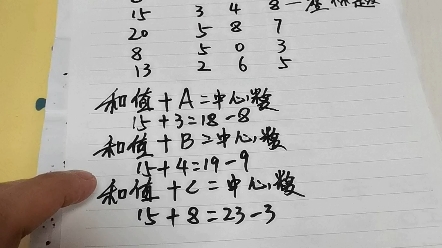 15 3 4 8 一
20 5 8 7
8 5 0 3
13 2 6 5
和值+A=中心数
15+3=18-8
和值+B=中心数
15+4=19-9
和值+C=中心数
15+8=23-3